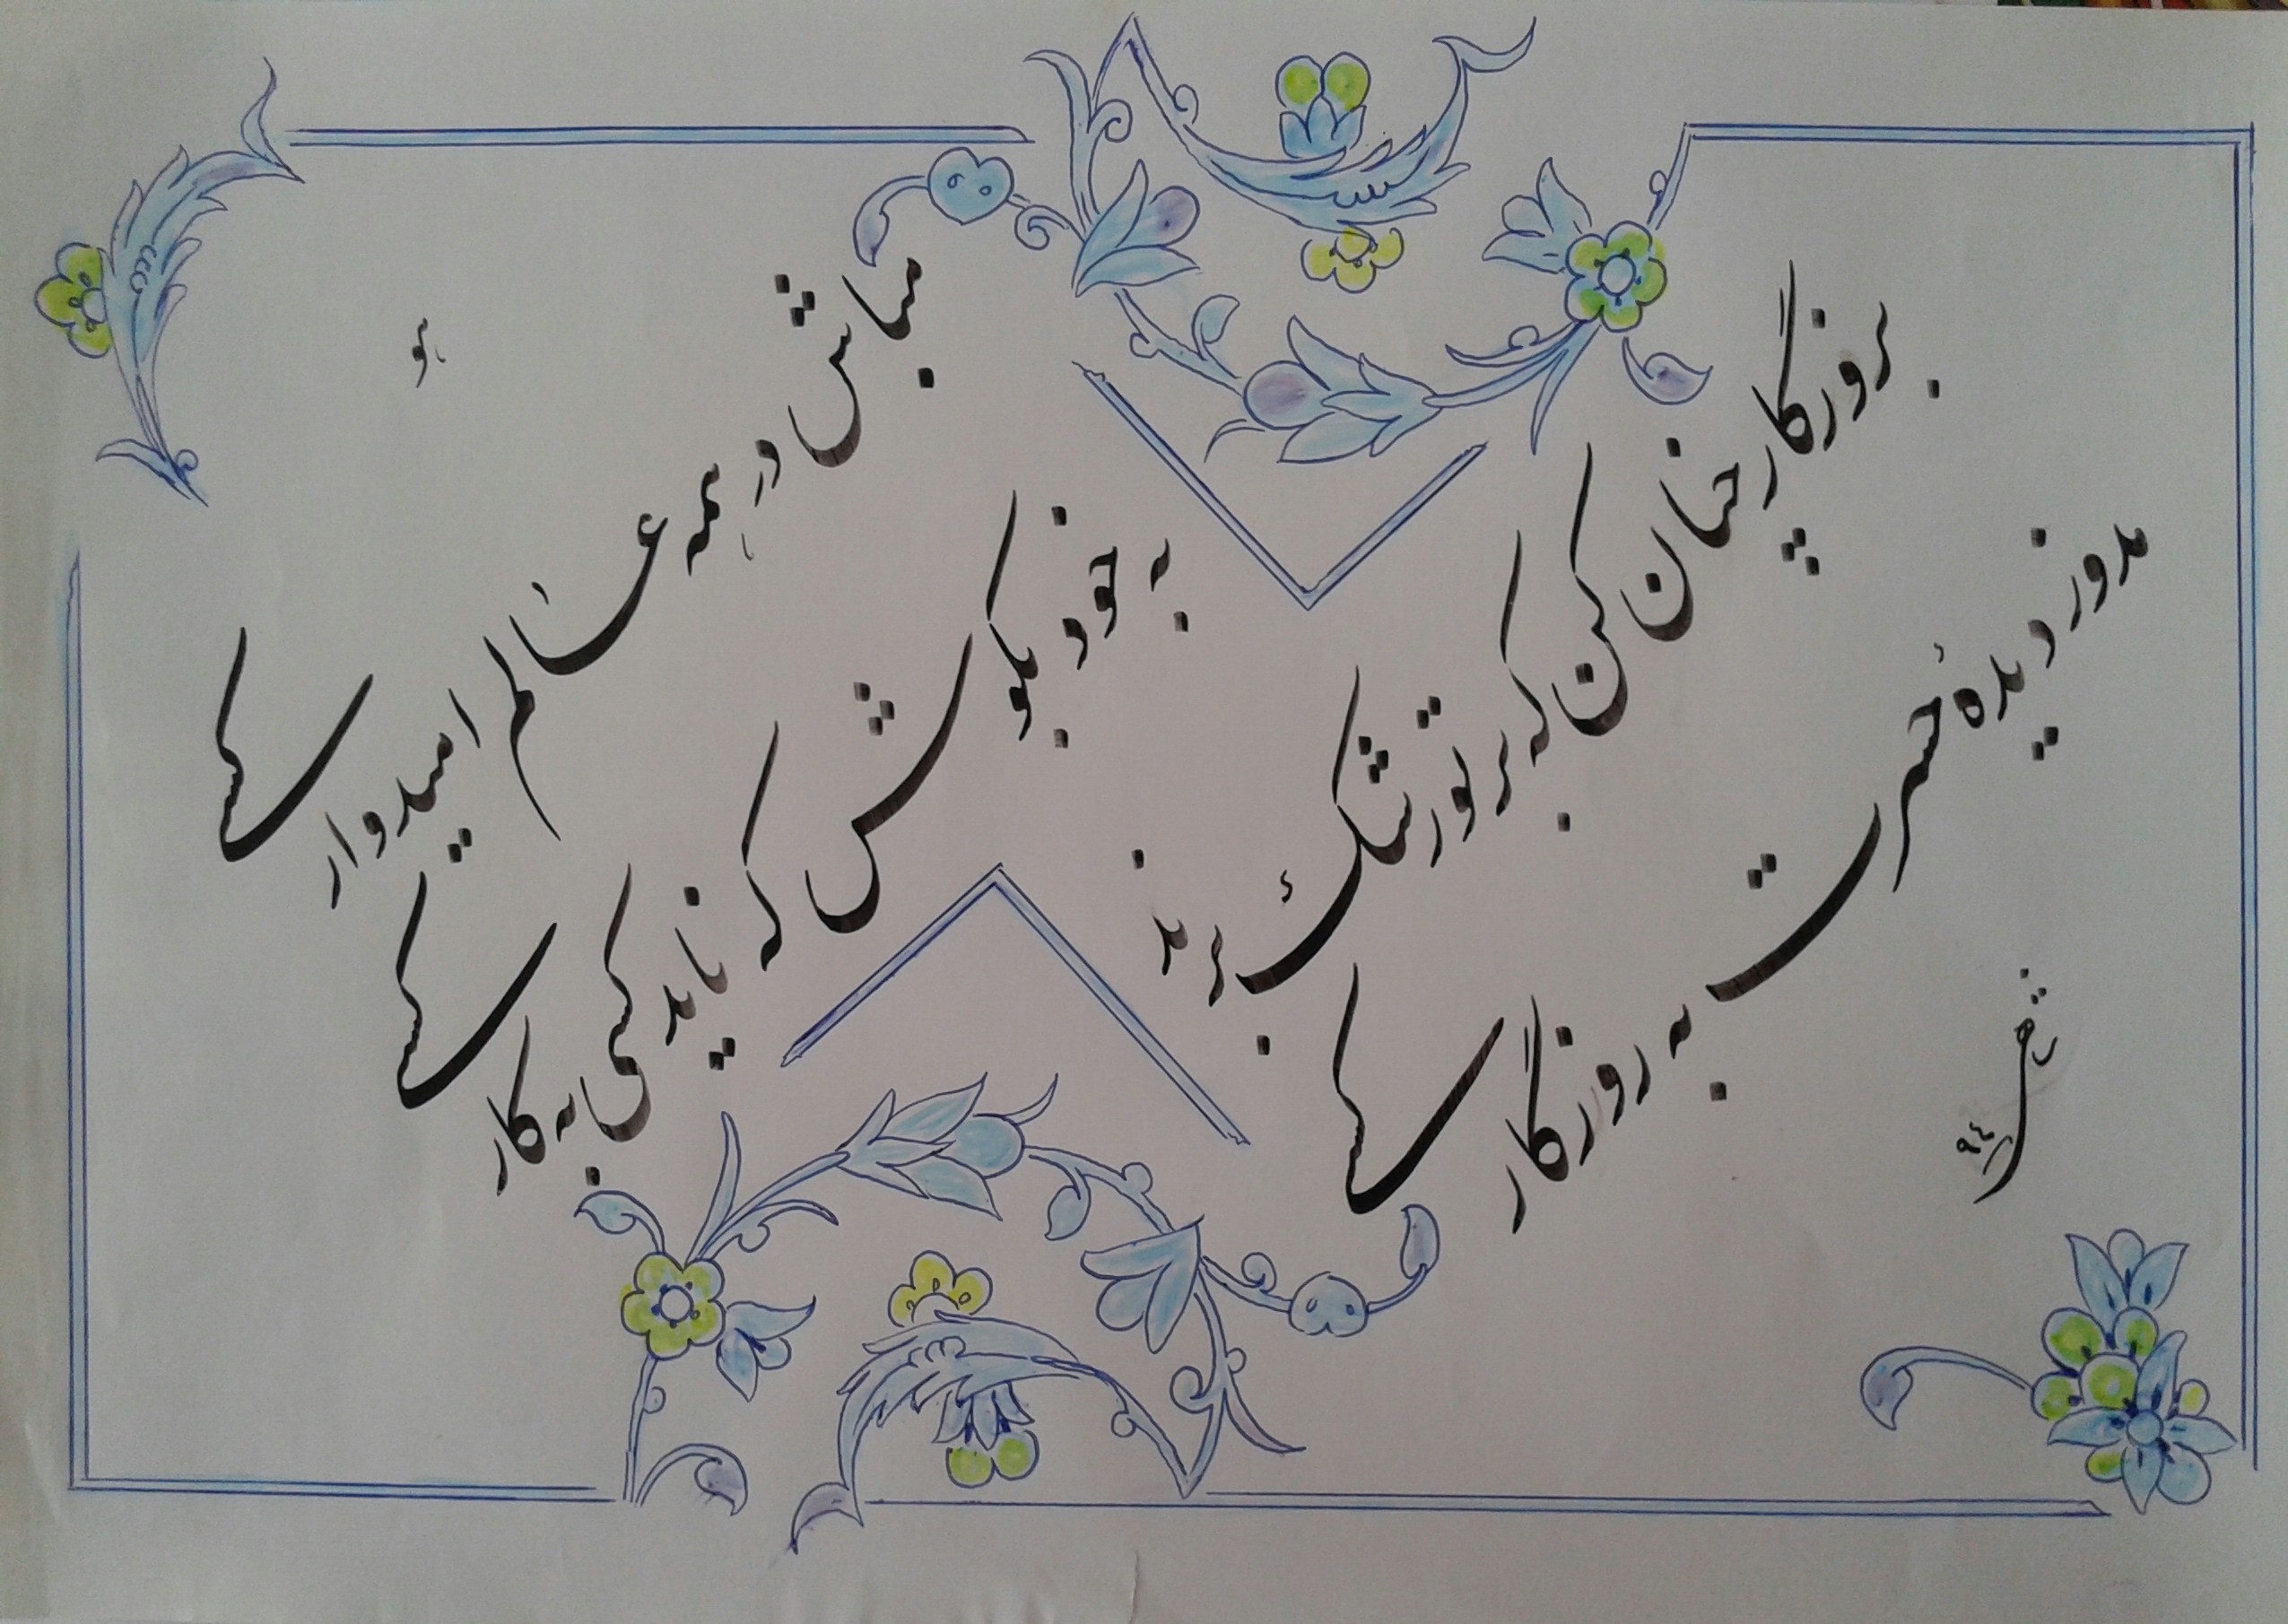 هو
مباش در همه عالم امیدوار کسی
به خود بکوش که ناید کسی به کار کسی
بروزگار چنان کن که بر تو رشک برند
مدوز دیدهٔ حسرت به روزگار کسی
۹۴